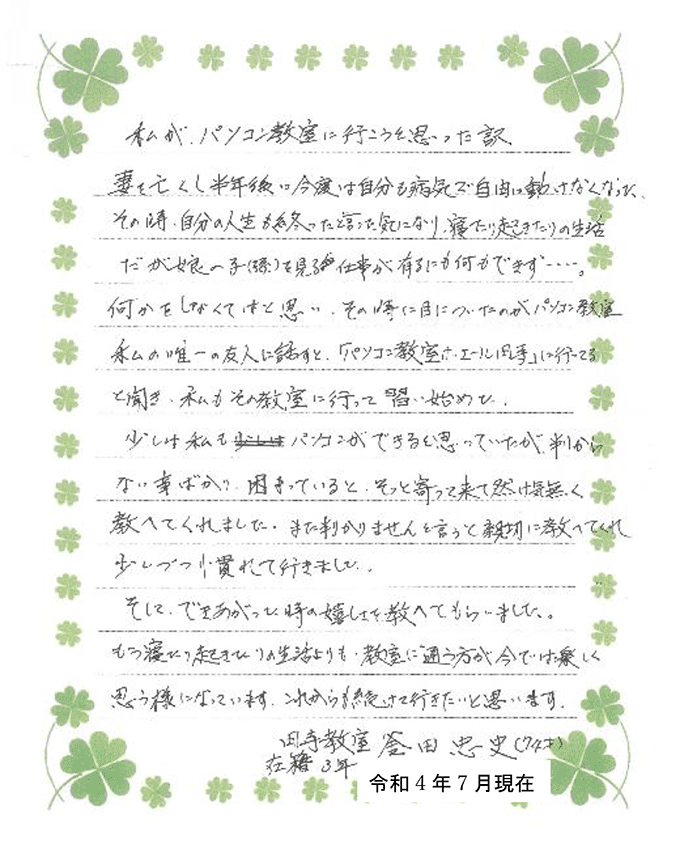 私が、パソコン教室に行こうと思った訳
妻を亡くし半年後に今度は自分も病気で自由に動けなくなった、
その時、自分の人生も終ったと言った気になり、寝たり起きたりの生活
だが娘の子(孫)を見る仕事が有るにも何もできず……。
何かをしなくてはと思い、その時に目についたのがパソコン教室
私の唯一の友人に話すと、「パソコン教室ホエール円手」に行ってる
と聞き、私もその教室に行って習い始めた。
少しは私も少しはパソコンができると思っていたが、判から
ない事ばかり、困まっていると、そっと寄って来て然け気無く
教へてくれました。また判かりませんと言うと親切に教へてくれ
少しづつ慣れて行きました。
そして、できあがった時の嬉しさを教へてもらいました。
もう寝たり起きたりの生活よりも、教室に通う方が今では楽しく
思う様になっています。これからも続けて行きたいと思います。
円手教室 田忠史(74才)
在籍3年
令和4年7月現在